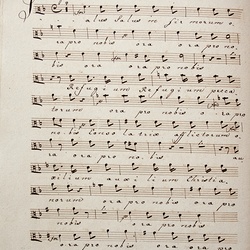 alus Salus in fir morum o
ra pro nobis ora ora pro no
bis ora ora pro nobis
Refugium Refugium pecca
torum ora ora pro no
bis Conso latrix afflictorum o
ra ora pro no bis au
xilium auxi li um Christia
norum ora ora pro nobis o ra pro
nobis ora pro
nobis ora ora pro